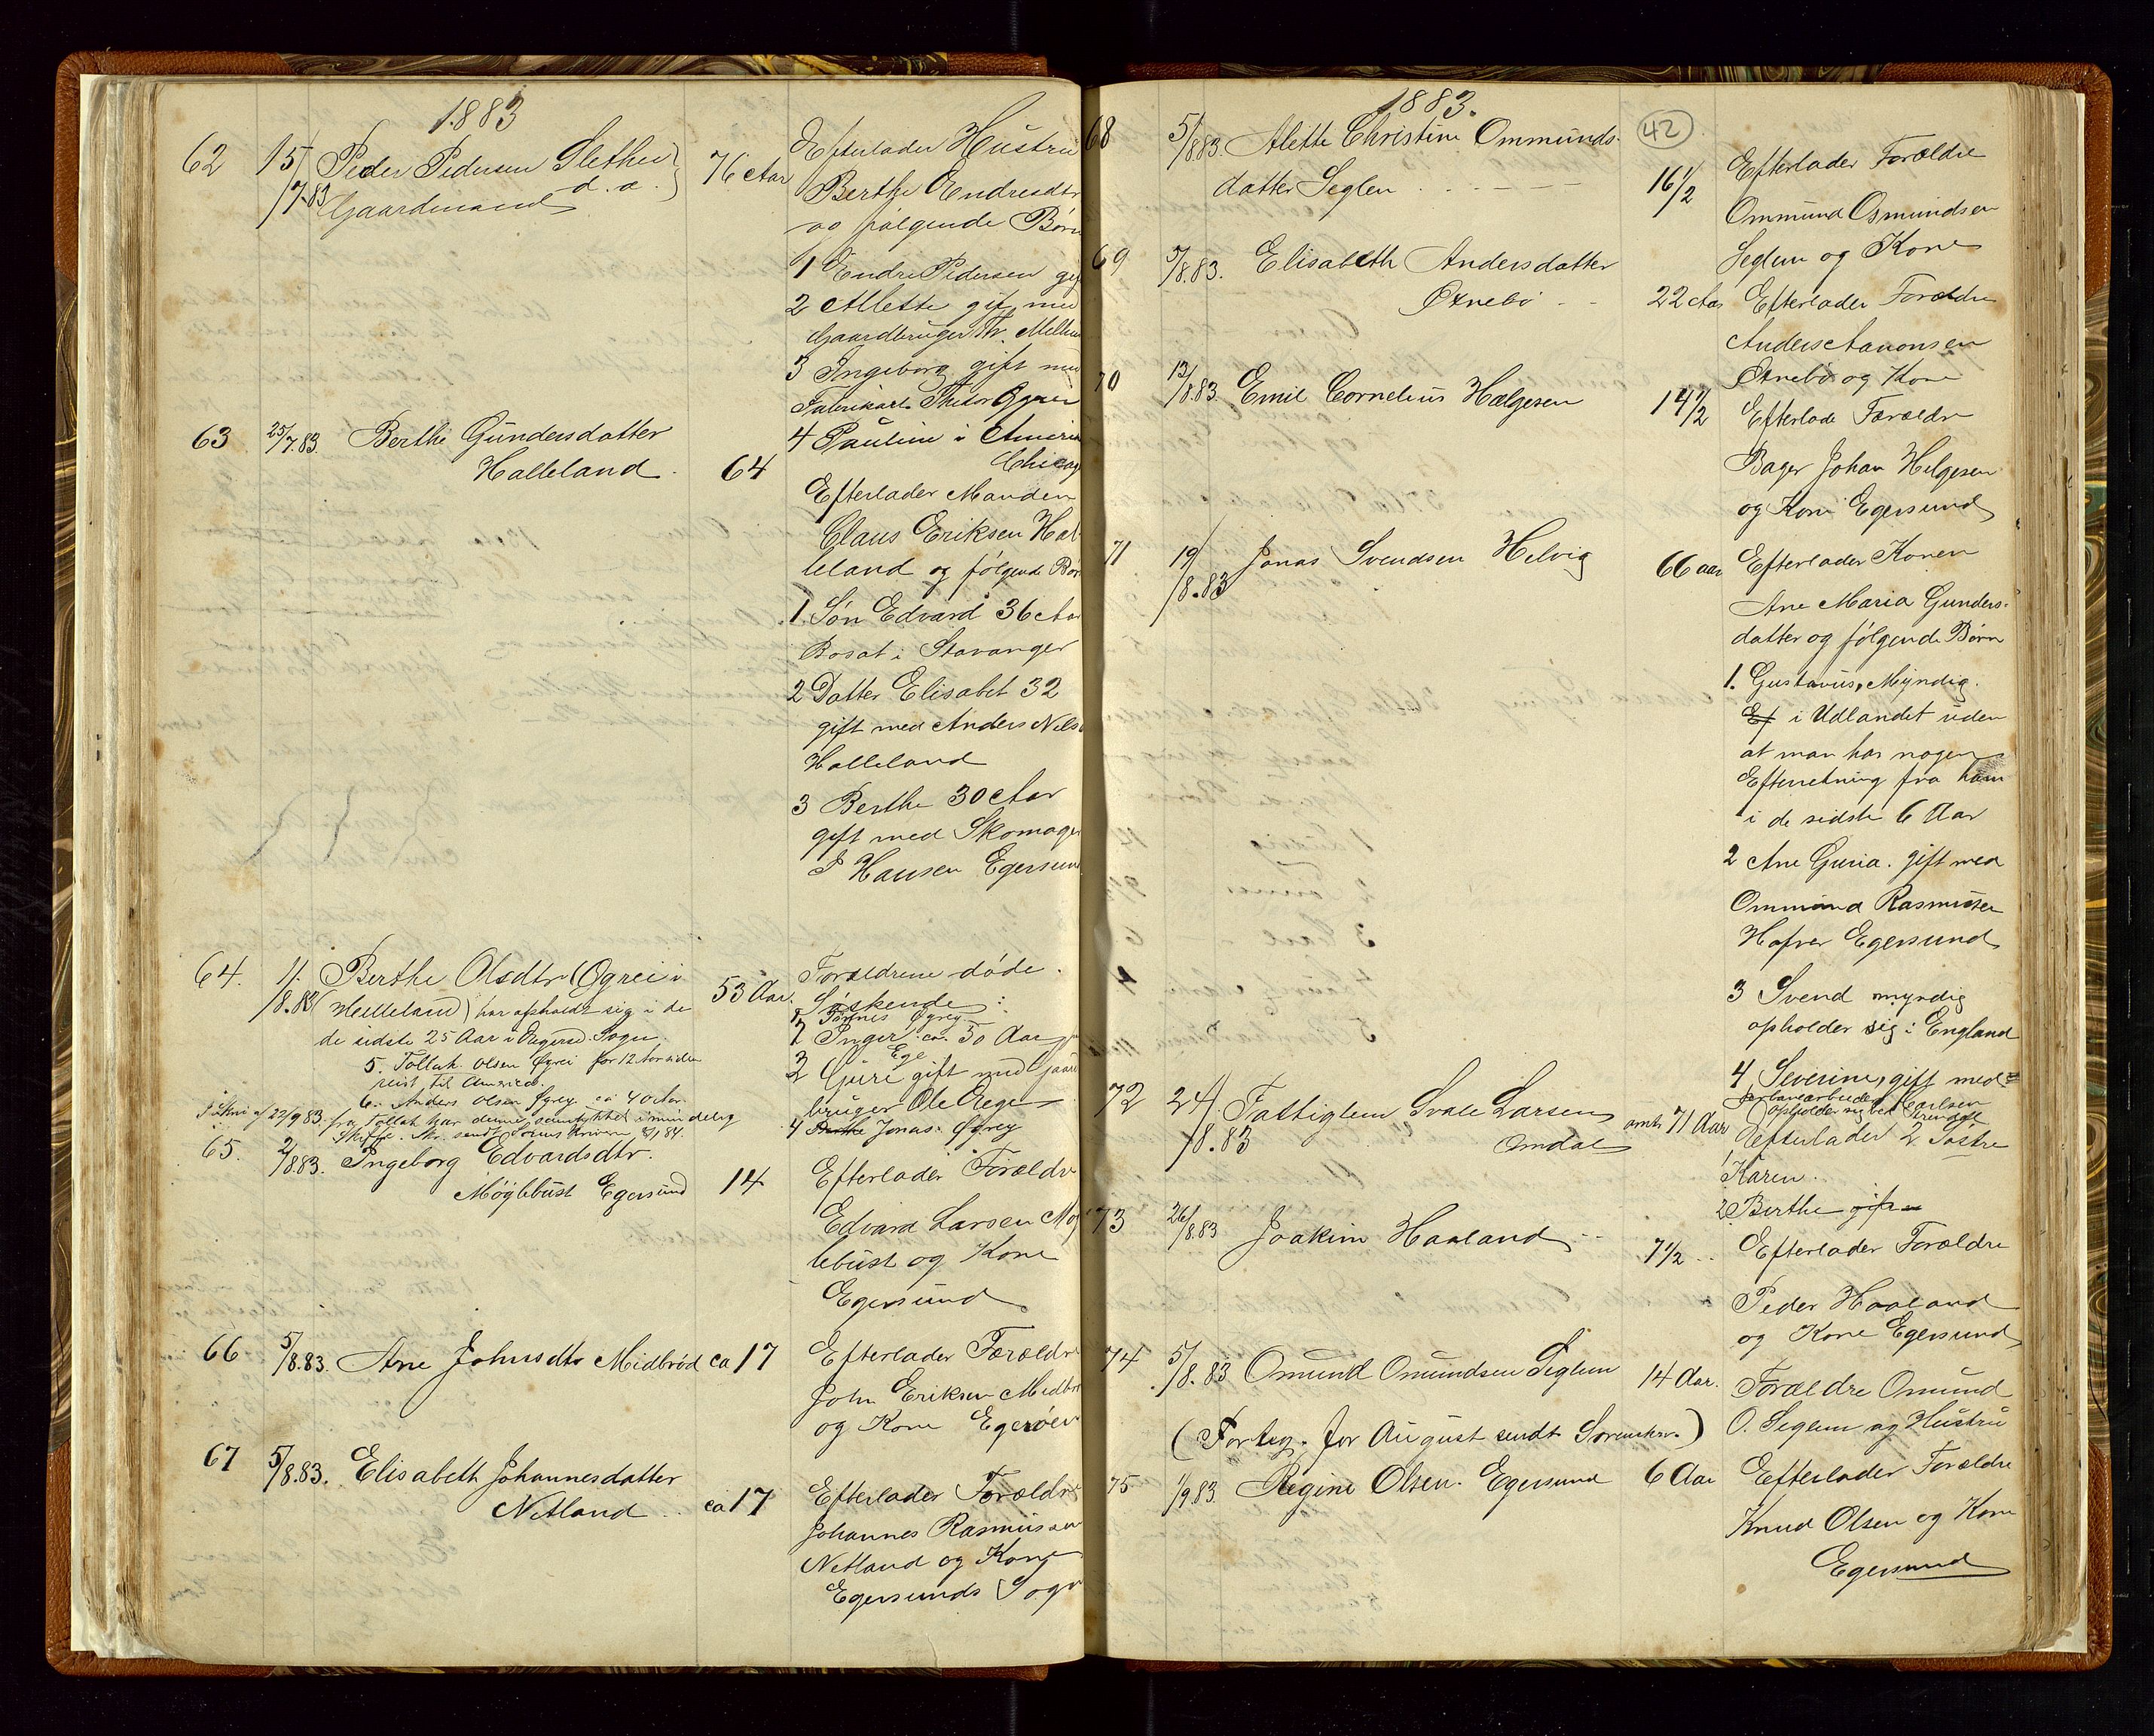 1883
62 15/7.83 Peder Pedersen Slethei d. a. 76 Aar
Gaardmand
Efterlader Hustru
Berthe Endresdtr
og følgende Børn
1 Endre Pedersen gif
2 Allette gift med
Gaardbruger Th.
3 Ingeborg gift med
4 Pauline i Ameri
Chicag
63 25/7.83. Berthe Gundersdatter
Halleland. 64
Efterlader Manden
Claus Eriksen Hal
leland og følgende Bør
1. Søn Edvard 36 Aar
Bosat i Stavanger
2 Datter Elisabet 32
gift med Anders Nels
Halleland
3 Berthe 30 Aar
gift med Skomager
J Hansen Egersund
64. 1/8.83 Berthe Olsdtr (Øgrei i
Helleland) har opholdt sig i de
de sidste 25 Aar i Egersd. Sogn
53 Aar.
5. Tollak Olsen Øgrei for 12 Aar siden
reist til America.
6. Anders Olsen Øgrey ca 40 Aar.
22/9 83. fra Tollak har denne samtykket i mindelig
Skifte.
Forældrene døde.
Søskende:
1 Tønnes Øgrey
2 Inger ca. 50 Aar
Ege
3 Guri gift med Gaard
bruger Ole Aege
4 Berthe Jonas Øgrey
65. 2/8.83. Ingeborg Edvardsdtr.
Møglebust Egersund 14
Efterlader Forældre
Edvard Larsen Møg
lebust og Kone
Egersund
66 5/8.83. Ane Johnsdtr Midbrød ca 17
Efterlader Forældre
John Eriksen Midbrø
og Kone Egerøen
67 5/8.83. Elisabeth Johannesdatter
Netland .. ca 17
Efterlader Forældre
Johannes Rasmussen
Netland og Kone
Egersunds Sogn
1883.
42
68 5/8.83. Alette Christine Ommunds-
datter Seglem 16 1/2
Efterlader Forældre
Ommund Osmundsen
Seglem og Kone
69 5/8.83. Elisabeth Andersdatter
Øxnebø 22 Aar
Efterlader Forældre
Anders Aanonsen
Øxnebø og Kone
70 13/8.83 Emil Cornelius Hælgesen 14 1/2
Efterlade Forældre
Bager Johan Helgesen
og Kone Egersund
71 19/8.83 Jonas Svendsen Helvig 66 aar
Efterlader Konen
Ane Maria Gunders-
datter og følgende Børn
1. Gustavus, Myndig.
Ef i Udlandet uden
at man har nogen
Efterretning fra ham
i de sidste 6 Aar
2 Ane Guria. gift med
Ommund Rasmussen
Hafver Egersund
3 Svend myndig
opholder sig i England
4 Severine, gift med
Jernbanearbeider Carlsen
72 24/8.83 Fattiglem Svale Larsen
Omdal omtr 71 Aar
Efterlader 2 Søstre
1 Karen.
2 Berthe gift
73 26/8.83 Joakim Haaland 7 1/2
Efterlader Forældre
Peder Haaland
og Kone Egersund
74 5/8.83 Omund Omundsen Seglem 14 Aar.
Forældre Omund
O. Seglem og Hustru
(Forteg. for August sendt Sorenskr.)
75 1/9.83. Regine Olsen. Egersund 6 Aar
Efterlader Forældre
Knud Olsen og Kone
Egersund